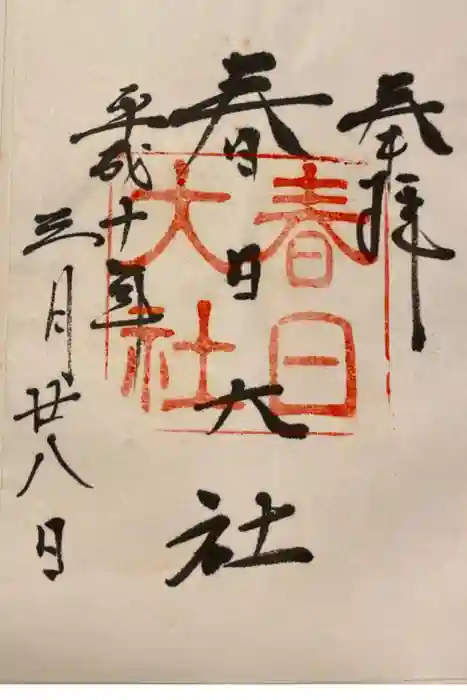 奉拝
春日大社
平成十年
三月廿八日
春日
大社